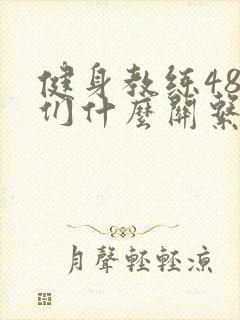 健身教练48
们什麼關繫
月聲輕輕涼